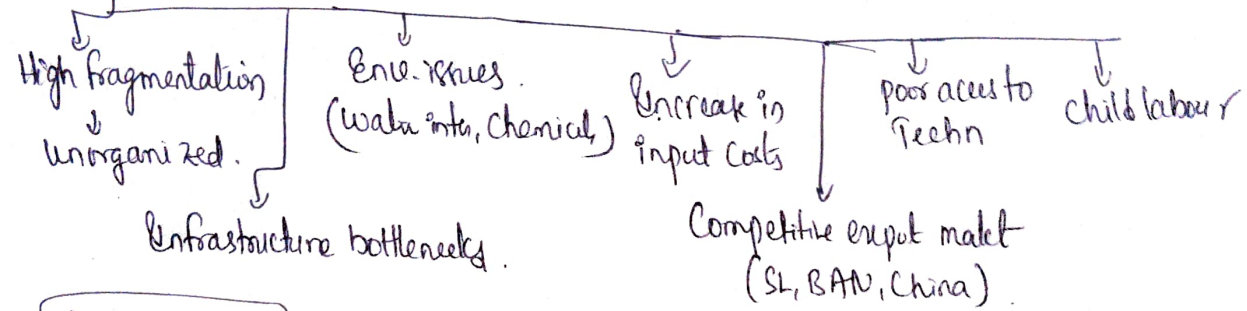 High fragmentation
Unorganized.
Infrastructure bottlenecks.
Env. issues.
(water inten, Chemicals)
Increase in
input costs
Competitive export market
(SL, BAN, China)
poor access to
Techn
child labour